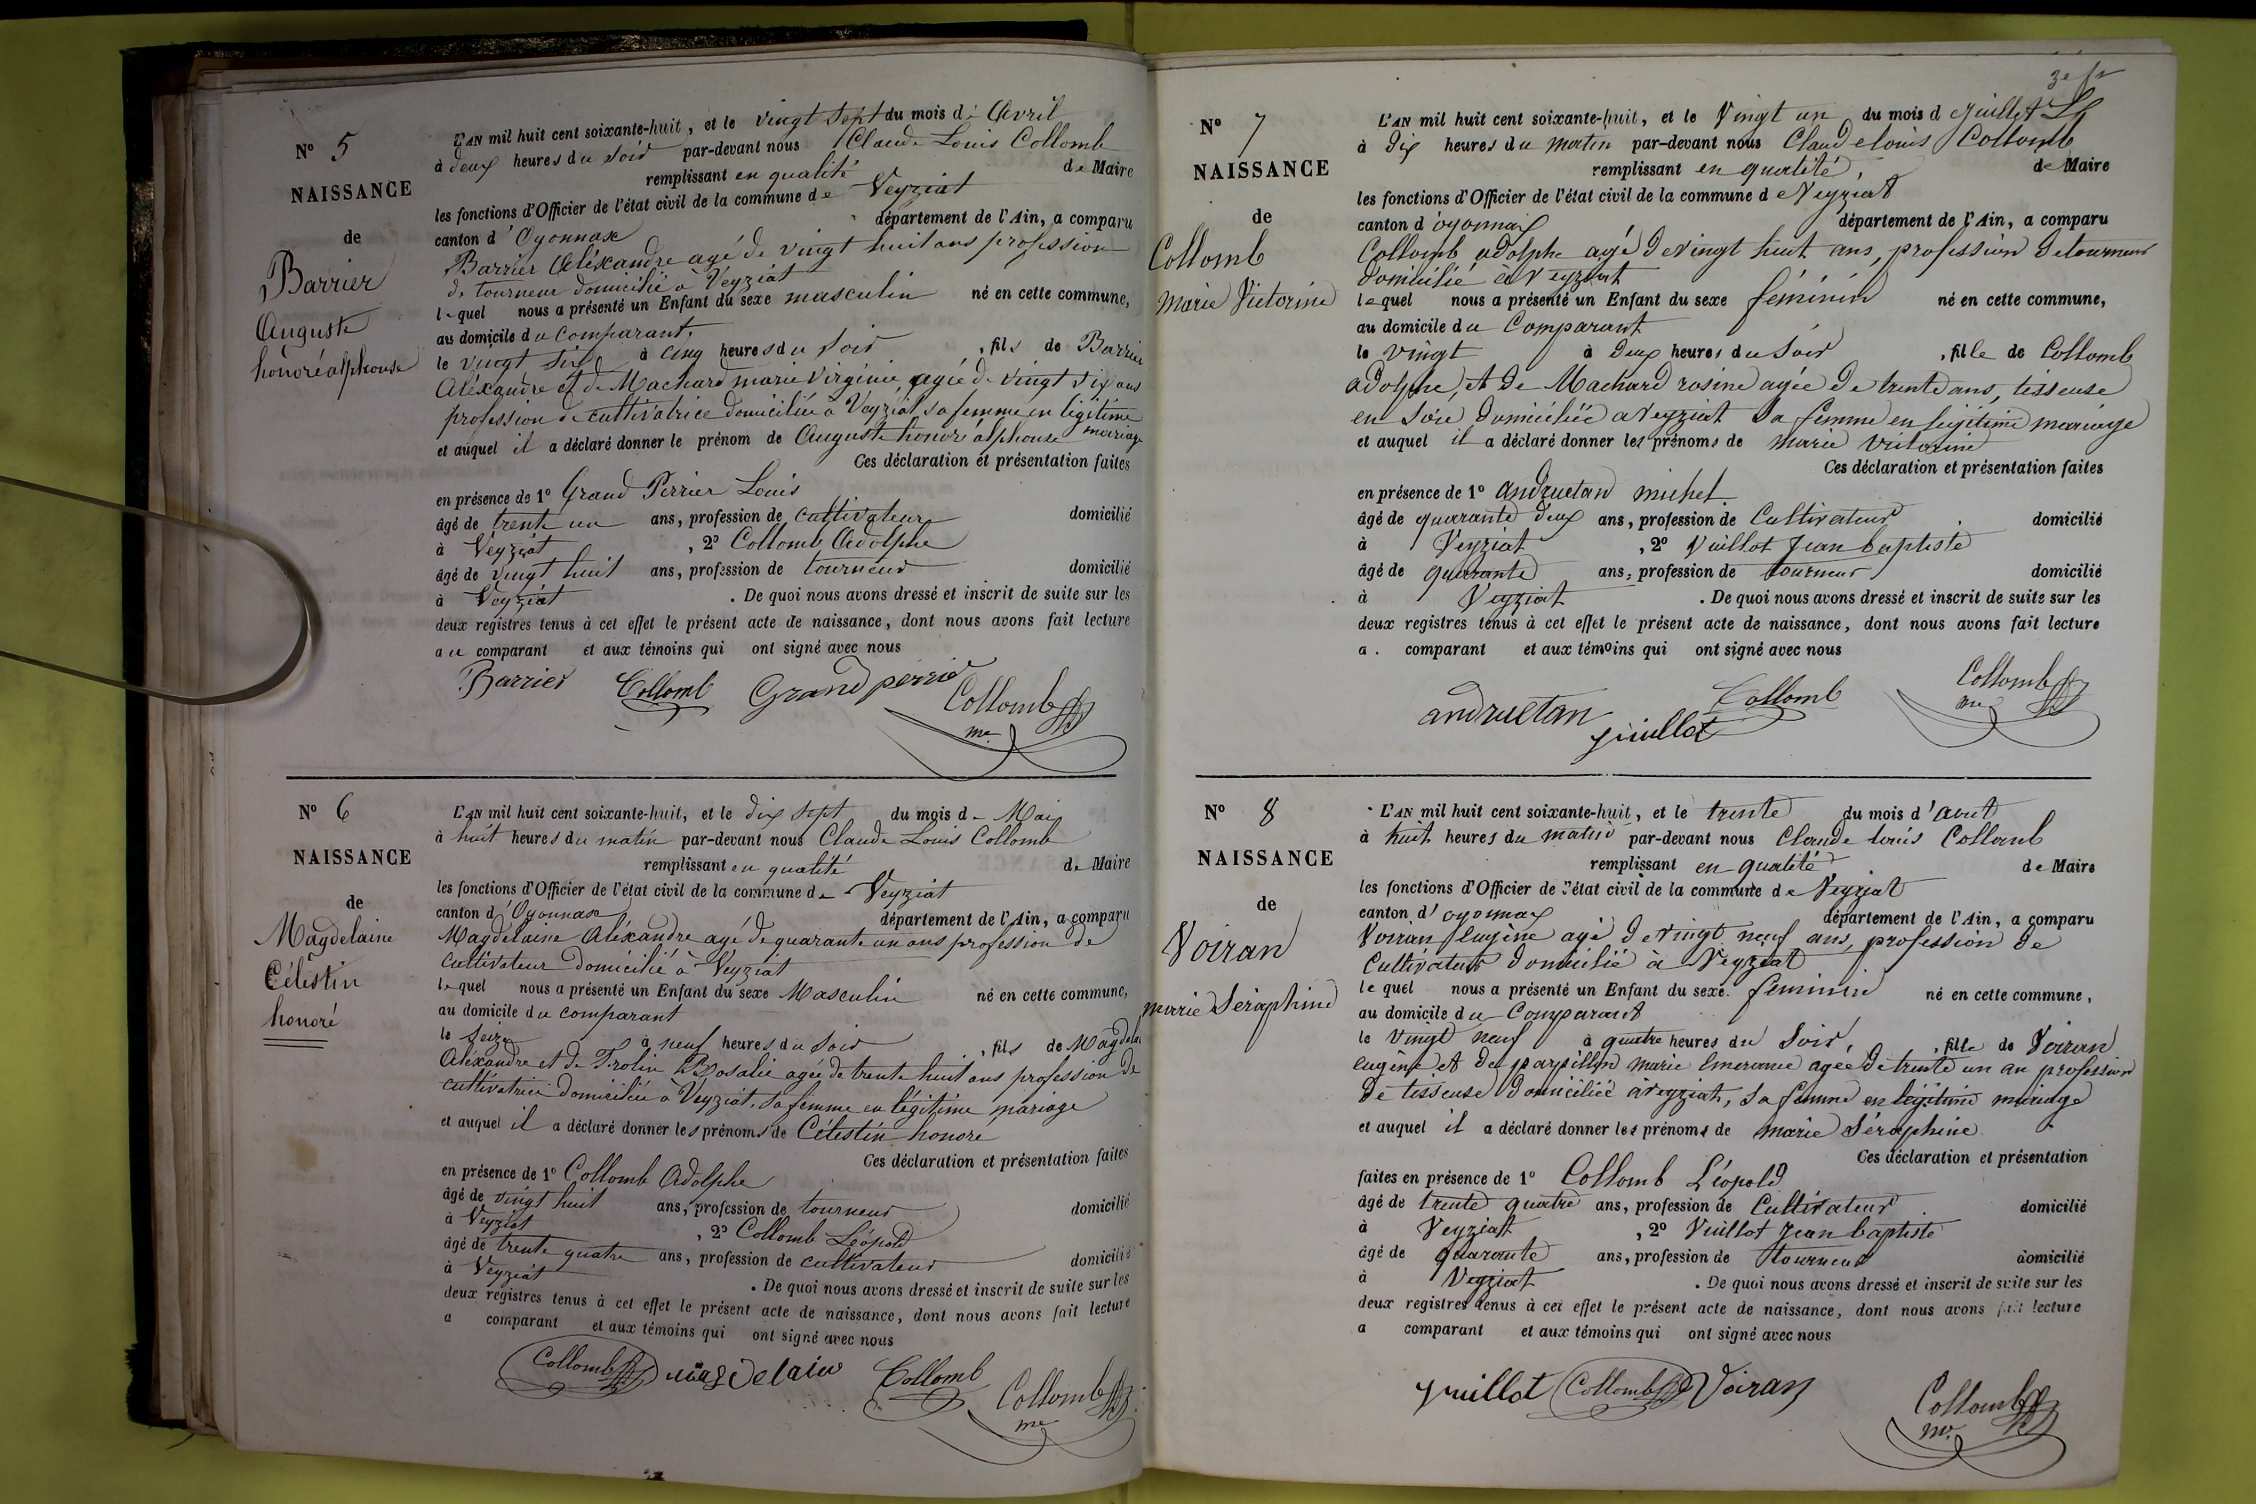 N° 5
NAISSANCE
de
Barrier
Auguste
honoré alphonse
L'AN mil huit cent soixante-huit, et le vingt sept du mois de Avril
à deux heures du soir par-devant nous Claude Louis Collomb
remplissant en qualité de Maire
les fonctions d'Officier de l'état civil de la commune de Veyziat
canton d'Oyonnax département de l'Ain, a comparu
Barrier Aléxandre agé de vingt huit ans profession
de tourneur domicilié à Veyziat
lequel nous a présenté un Enfant du sexe masculin né en cette commune,
au domicile du comparant,
le vingt six à cinq heures du soir, fils de Barrier
Aléxandre et de Machard marie virginie, agée de vingt six ans
profession de cultivatrice domiciliée à Veyziat, sa femme en légitime
mariage
et auquel il a déclaré donner le prénom de Auguste honoré alphonse
Ces déclaration et présentation faites
en présence de 1° Grand Perrier Louis
âgé de trente un ans, profession de cultivateur domicilié
à Veyziat, 2° Collomb Adolphe
âgé de vingt huit ans, profession de tourneur domicilié
à Veyziat. De quoi nous avons dressé et inscrit de suite sur les
deux registres tenus à cet effet le présent acte de naissance, dont nous avons fait lecture
au comparant et aux témoins qui ont signé avec nous
Barrier Collomb Grand perrier Collomb
me
N° 6
NAISSANCE
de
Magdelaine
Célestin
honoré
L'AN mil huit cent soixante-huit, et le dix sept du mois de Mai
à huit heures du matin par-devant nous Claude Louis Collomb
remplissant en qualité de Maire
les fonctions d'Officier de l'état civil de la commune de Veyziat
canton d'Oyonnax département de l'Ain, a comparu
Magdelaine Aléxandre agé de quarante un ans profession de
cultivateur domicilié à Veyziat
lequel nous a présenté un Enfant du sexe Masculin né en cette commune,
au domicile du comparant
le seize à neuf heures du soir, fils de Magdelai
Aléxandre et de Frolin Rosalie agée de trente huit ans profession de
cultivatrice domiciliée à Veyziat, sa femme en légitime mariage
et auquel il a déclaré donner les prénoms de Célestin honoré
Ces déclaration et présentation faites
en présence de 1° Collomb Adolphe
âgé de vingt huit ans, profession de tourneur domicilié
à Veyziat, 2° Collomb Léopold
âgé de trente quatre ans, profession de cultivateur domicilié
à Veyziat. De quoi nous avons dressé et inscrit de suite sur les
deux registres tenus à cet effet le présent acte de naissance, dont nous avons fait lecture
a comparant et aux témoins qui ont signé avec nous
Collomb magdelain Collomb Collomb
me
N° 7
NAISSANCE
de
Collomb
marie Victorine
L'AN mil huit cent soixante-huit, et le Vingt un du mois d juillet
à dix heures du matin par-devant nous Claude louis Collomb
remplissant en qualité de Maire
les fonctions d'Officier de l'état civil de la commune de Veyziat
canton d'oyonnax département de l'Ain, a comparu
Collomb adolphe agé de vingt huit ans, profession de tourneur
domicilié à Veyziat
lequel nous a présenté un Enfant du sexe féminin né en cette commune,
au domicile du Comparant
le vingt à deux heures du soir, fille de Collomb
adolphe, et de Machard rosine agée de trente ans, tisseuse
en soie domiciliée a Veyziat sa femme en légitime mariage
et auquel il a déclaré donner les prénoms de marie victorine
Ces déclaration et présentation faites
en présence de 1° andruetan michel
âgé de quarante deux ans, profession de Cultivateur domicilié
à Veyziat, 2° Vuillot Jean baptiste
âgé de quarante ans, profession de tourneur domicilié
à Veyziat. De quoi nous avons dressé et inscrit de suite sur les
deux registres tenus à cet effet le présent acte de naissance, dont nous avons fait lecture
a. comparant et aux témoins qui ont signé avec nous
andruetan vuillot Collomb Collomb
me
N° 8
NAISSANCE
de
Voiran
marie Séraphine
L'AN mil huit cent soixante-huit, et le trente du mois d'aout
à huit heures du matin par-devant nous Claude louis Collomb
remplissant en qualité de Maire
les fonctions d'Officier de l'état civil de la commune de Veyziat
canton d'oyonnax département de l'Ain, a comparu
Voiran Eugène agé de vingt neuf ans, profession de
Cultivateur domicilié à Veyziat
lequel nous a présenté un Enfant du sexe féminin né en cette commune,
au domicile du Comparant
le vingt neuf à quatre heures du soir, fille de Voiran
eugène et de parpillon marie Emerance agée de trente un an profession
de tisseuse domiciliée à Veyziat, sa femme en légitime mariage
et auquel il a déclaré donner les prénoms de marie Séraphine
Ces déclaration et présentation
faites en présence de 1° Collomb Léopold
âgé de trente quatre ans, profession de Cultivateur domicilié
à Veyziat, 2° Vuillot Jean baptiste
âgé de quarante ans, profession de tourneur domicilié
à Veyziat. De quoi nous avons dressé et inscrit de suite sur les
deux registres tenus à cet effet le présent acte de naissance, dont nous avons fait lecture
a comparant et aux témoins qui ont signé avec nous
vuillot Collomb Voiran Collomb
me